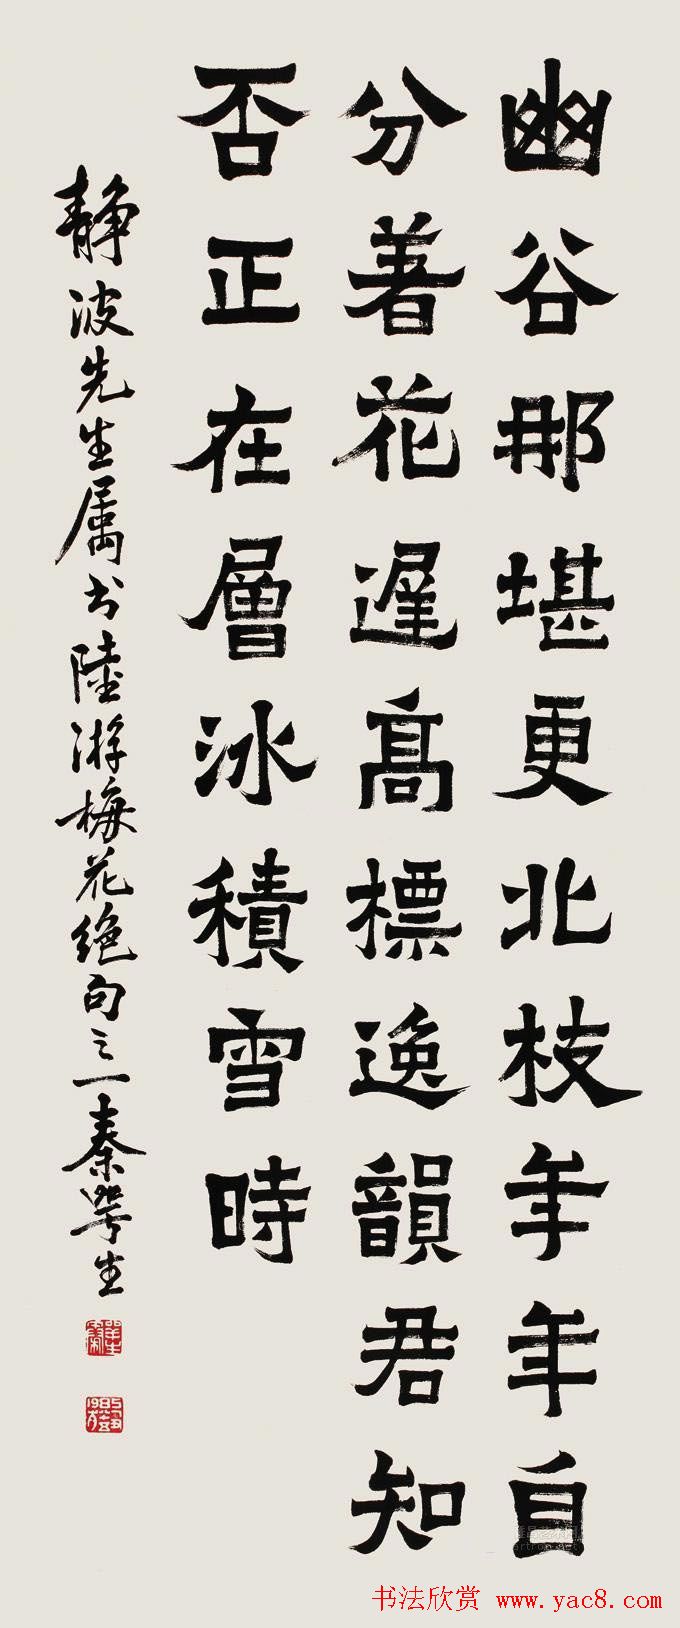 幽谷那堪更北枝年年自
分著花遲高標逸韻君知
否正在層冰積雪時
静波先生属书陸游梅花绝句之一秦咢生
书法欣赏 www.yac8.com